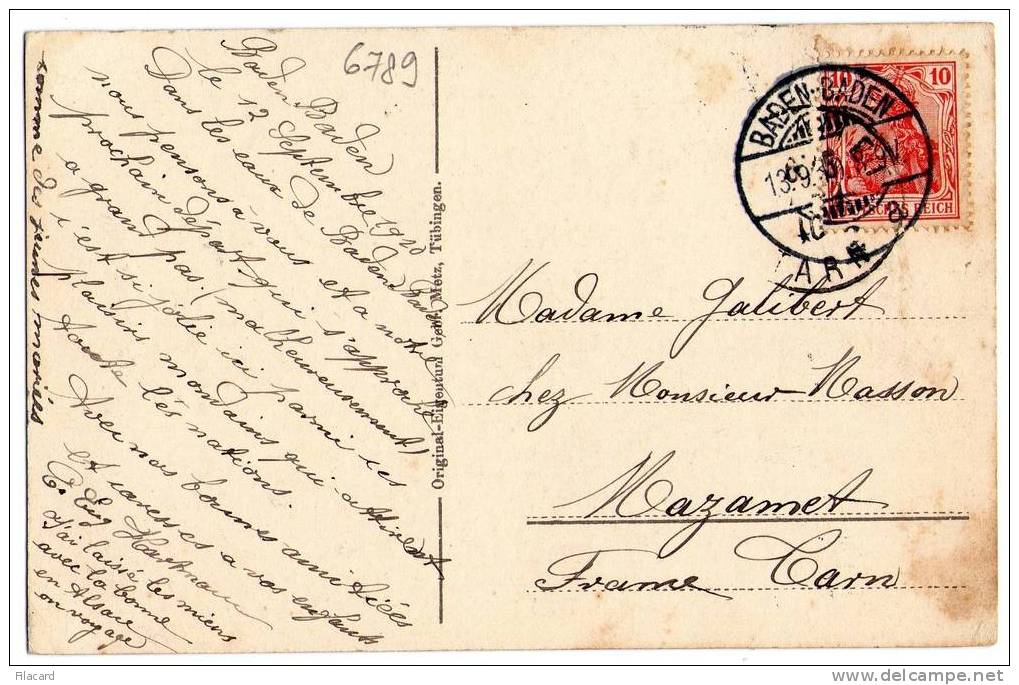 6789
Baden Baden
le 12 Septembre 1910
Dans les eaux de Baden Baden
nous pensons à vous et a notre
prochain départ qui s'approche
a grand pas. (malheureusement)
c'est si jolie ici parmi ces
plaisirs mondains qui attirent
toute les nations.
Avec nos bonnes amitiées
et caresses a vos enfants
Eug
J'ai laissé les miens
avec la bonne
en Alsace
on voyage
comme des jeunes mariés
Original-Eigentum Gebr. Metz, Tübingen.
10 10
BADEN-BADEN
13.9.
TARN
REICH
Madame Galibert
chez Monsieur Masson
Mazamet
France Tarn
Filacard
www.delcampe.net